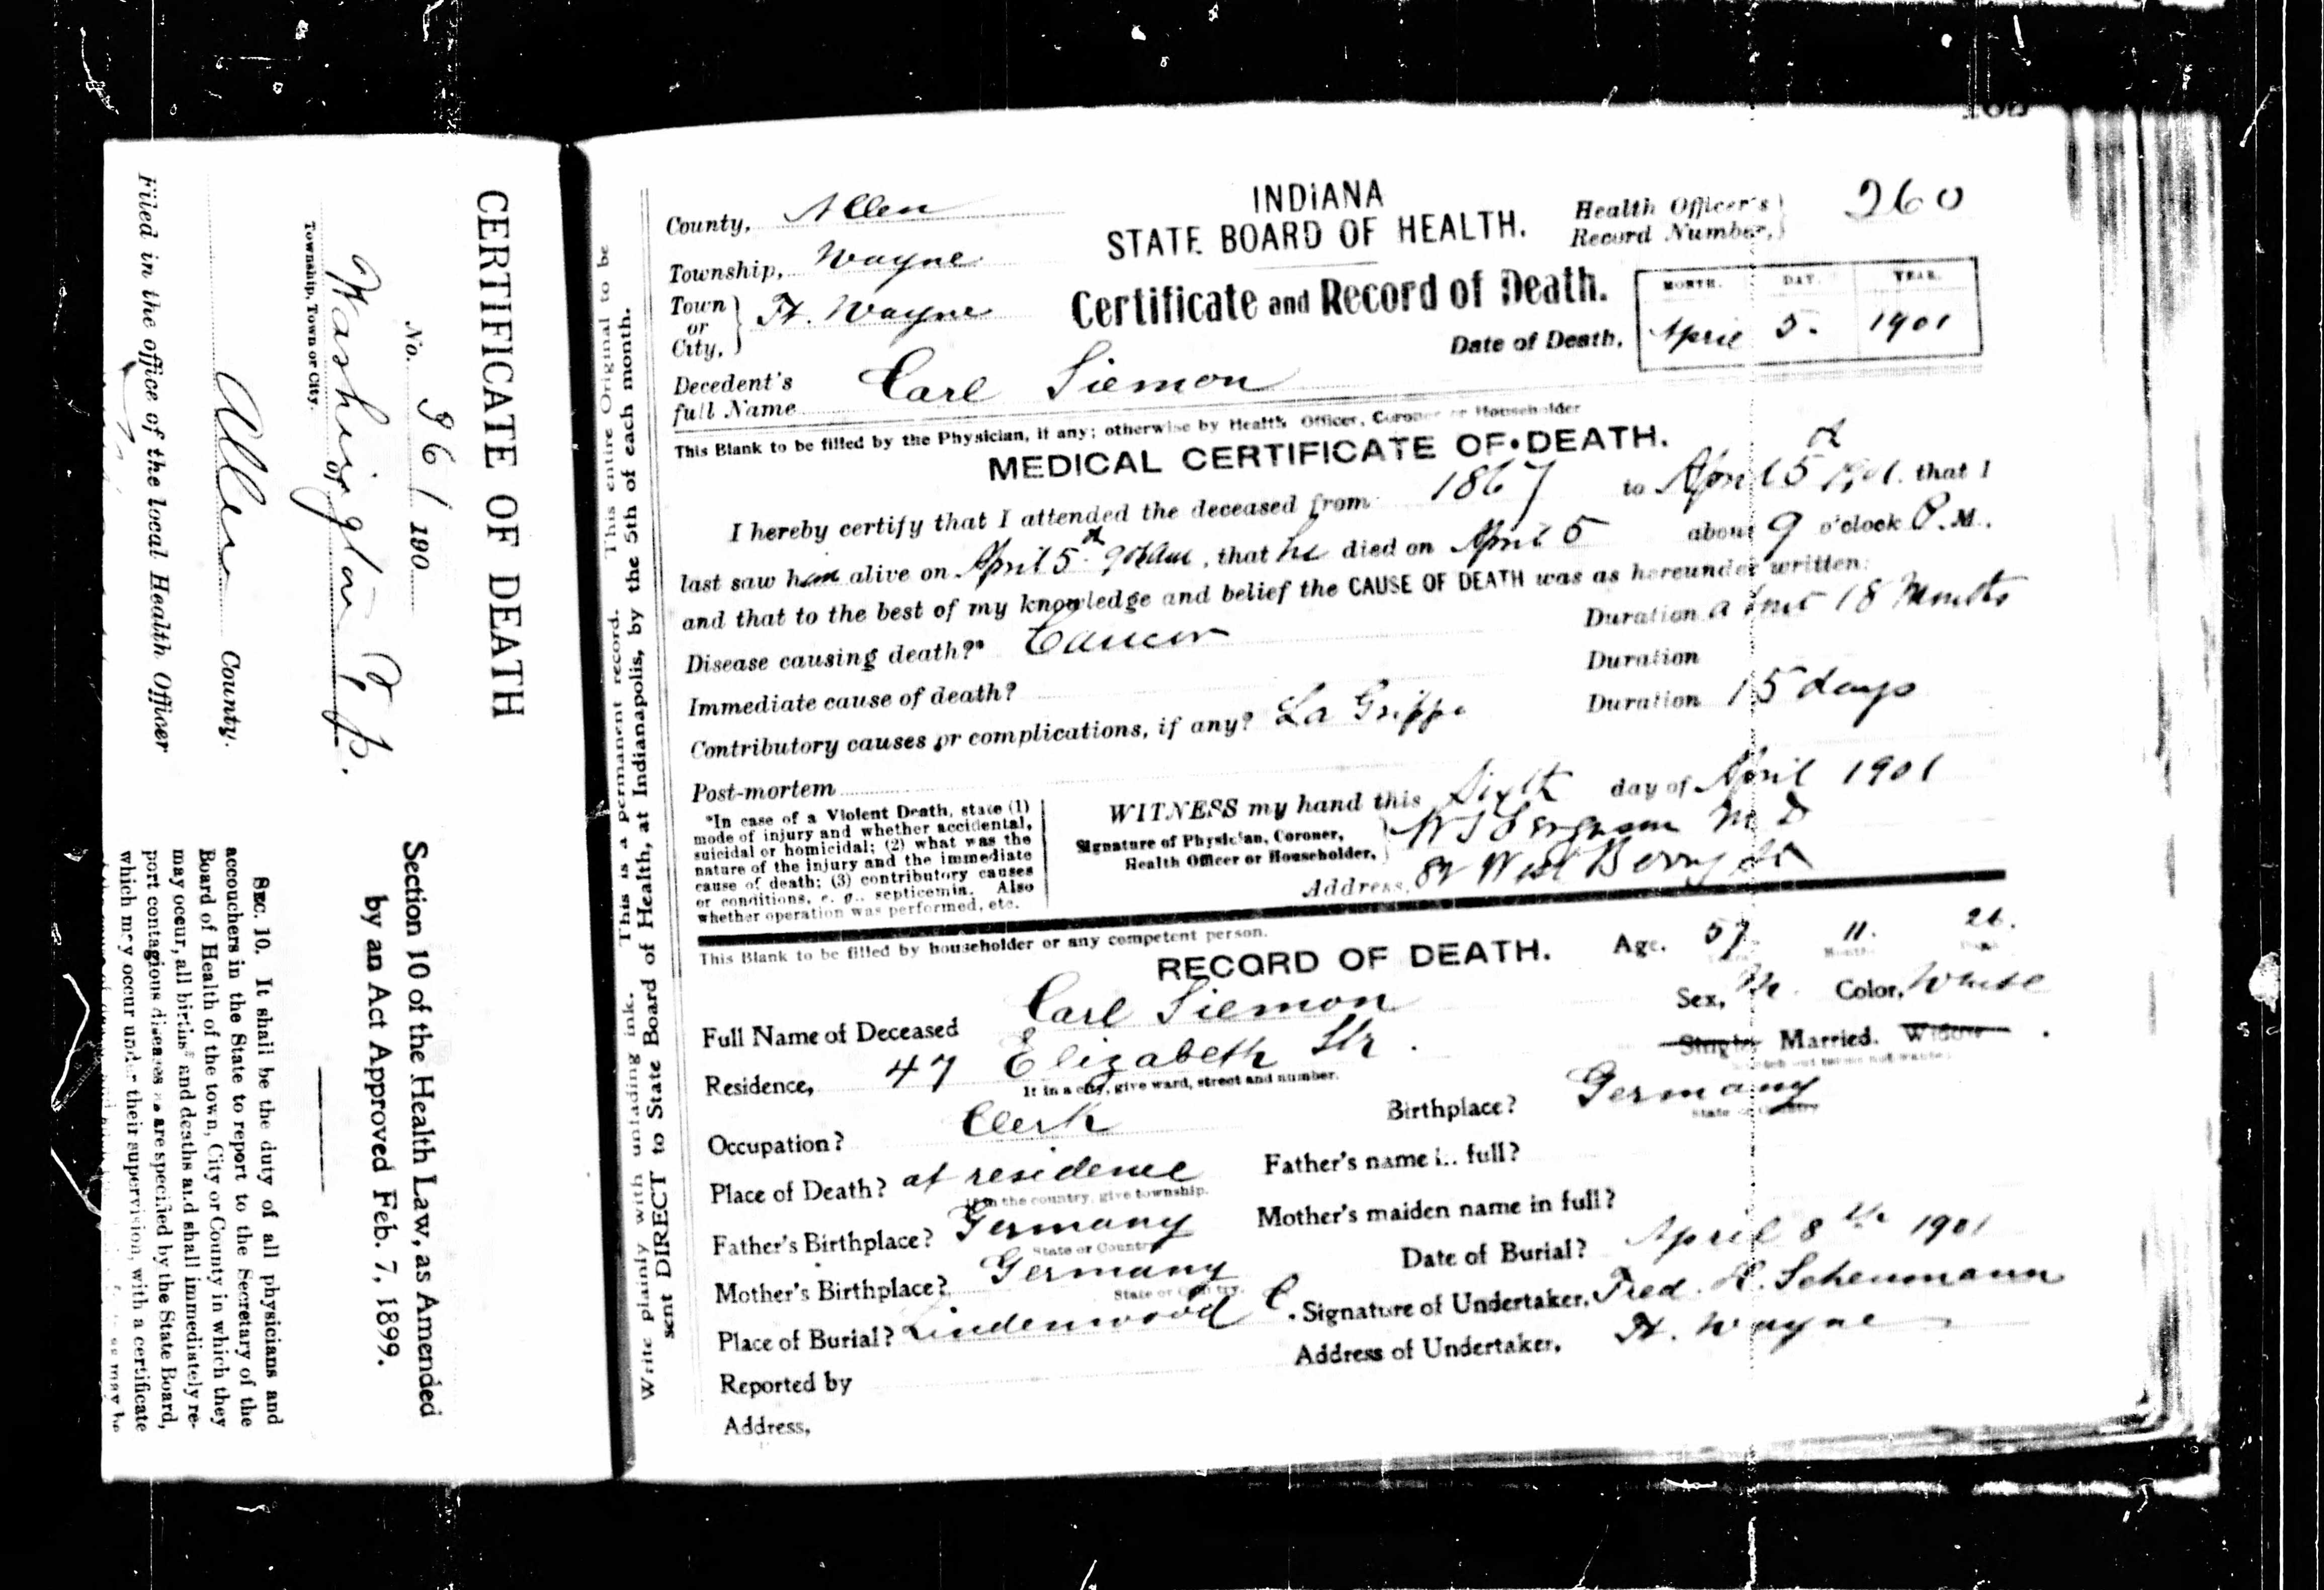 CERTIFICATE OF DEATH
No. 261 190
Washington Tp.
or
Township, Town or City.
Allen County.
Filed in the office of the local Health Officer
Section 10 of the Health Law, as Amended
by an Act Approved Feb. 7, 1899.
SEC. 10. It shall be the duty of all physicians and
accouchers in the State to report to the Secretary of the
Board of Health of the town, City or County in which they
may occur, all births and deaths and shall immediately re-
port contagious diseases as are specified by the State Board,
which may occur under their supervision, with a certificate
Write plainly with unfading ink. This is a permanent record. This entire Original to be
sent DIRECT to State Board of Health, at Indianapolis, by the 5th of each month.
County, Allen
Township, Wayne
Town or City, Ft. Wayne
INDIANA
STATE BOARD OF HEALTH.
Certificate and Record of Death.
Health Officer's Record Number, 260
MONTH. DAY. YEAR.
Date of Death, April 5. 1901
Decedent's full Name Carl Siemon
This Blank to be filled by the Physician, if any; otherwise by Health Officer, Coroner or Householder
MEDICAL CERTIFICATE OF DEATH.
I hereby certify that I attended the deceased from 1867 to April 5th 1901. that I
last saw him alive on April 5th, that he died on April 5 about 9 o'clock P.M.,
and that to the best of my knowledge and belief the CAUSE OF DEATH was as hereunder written:
Disease causing death?* Cancer Duration about 18 Months
Immediate cause of death? Duration
Contributory causes or complications, if any? La Grippe Duration 15 days
Post-mortem
*In case of a Violent Death, state (1)
mode of injury and whether accidental,
suicidal or homicidal; (2) what was the
nature of the injury and the immediate
cause of death; (3) contributory causes
or conditions, e. g., septicemia. Also
whether operation was performed, etc.
WITNESS my hand this Sixth day of April 1901
Signature of Physician, Coroner,
Health Officer or Householder, Ferguson M D
Address, West Berry St
This Blank to be filled by householder or any competent person.
RECORD OF DEATH.
Age. 57 11. Months
Full Name of Deceased Carl Siemon
Sex, M. Color, White
Residence, 47 Elizabeth Str.
If in a city, give ward, street and number.
Single, Married. Widow
Strike out terms not wanted.
Occupation? Clerk
Birthplace? Germany
State or Country
Place of Death? at residence
If in the country, give township.
Father's name in full?
Father's Birthplace? Germany
State or Country
Mother's maiden name in full?
Mother's Birthplace? Germany
State or Country.
Date of Burial? April 8th 1901
Place of Burial? Lindenwood C.
Signature of Undertaker, Fred. H. Scheumann
Reported by
Address of Undertaker, Ft. Wayne
Address,